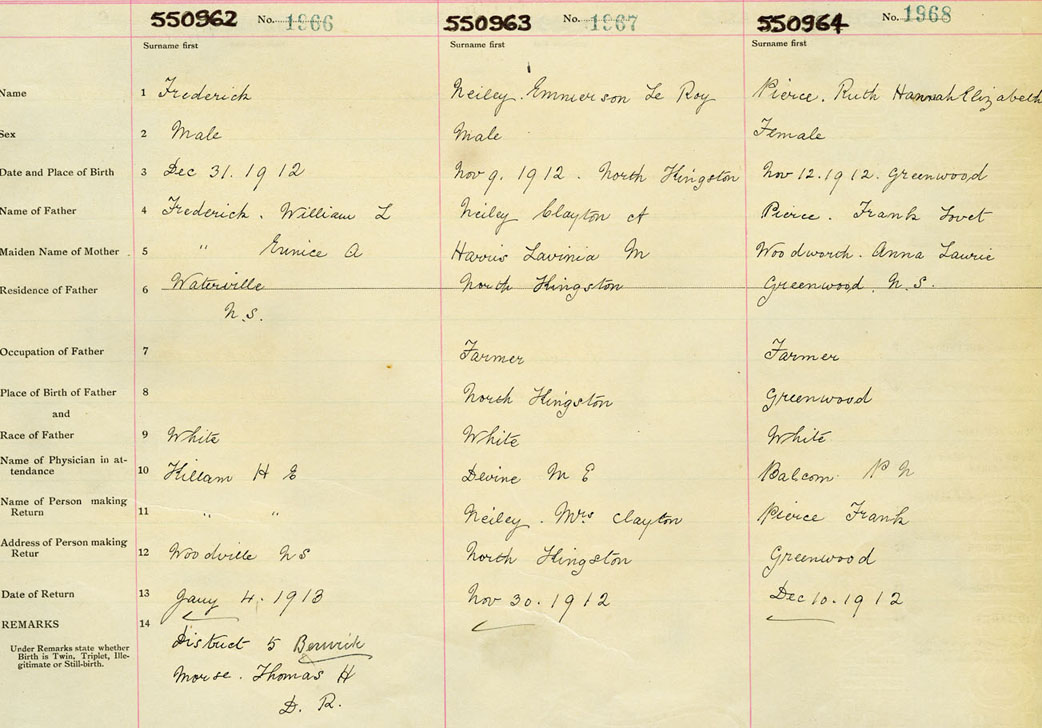 550962 No. 1966 550963 No. 1967 550964 No. 1968
Surname first Surname first Surname first
Name 1 Frederick Neiley. Emmerson Le Roy Pierce. Ruth Hannah Elizabeth
Sex 2 Male Male Female
Date and Place of Birth 3 Dec 31. 1912 Nov 9. 1912. North Kingston Nov 12. 1912. Greenwood
Name of Father 4 Frederick. William L Neiley Clayton A Pierce. Frank Lovet
Maiden Name of Mother 5 " Eunice A Harris Lavinia M Woodworth. Anna Laurie
Residence of Father 6 Waterville North Kingston Greenwood. N.S.
N.S.
Occupation of Father 7 Farmer Farmer
Place of Birth of Father 8 North Kingston Greenwood
and
Race of Father 9 White White White
Name of Physician in at-
tendance 10 Killam H E Devine M E Balcom P N
Name of Person making
Return 11 " " Neiley. Mrs Clayton Pierce Frank
Address of Person making
Retur 12 Woodville NS North Kingston Greenwood
Date of Return 13 Jany 4. 1913 Nov 30. 1912 Dec 10. 1912
REMARKS 14
Under Remarks state whether
Birth is Twin, Triplet, Ille-
gitimate or Still-birth.
District 5 Berwick
Morse. Thomas H
D. R.